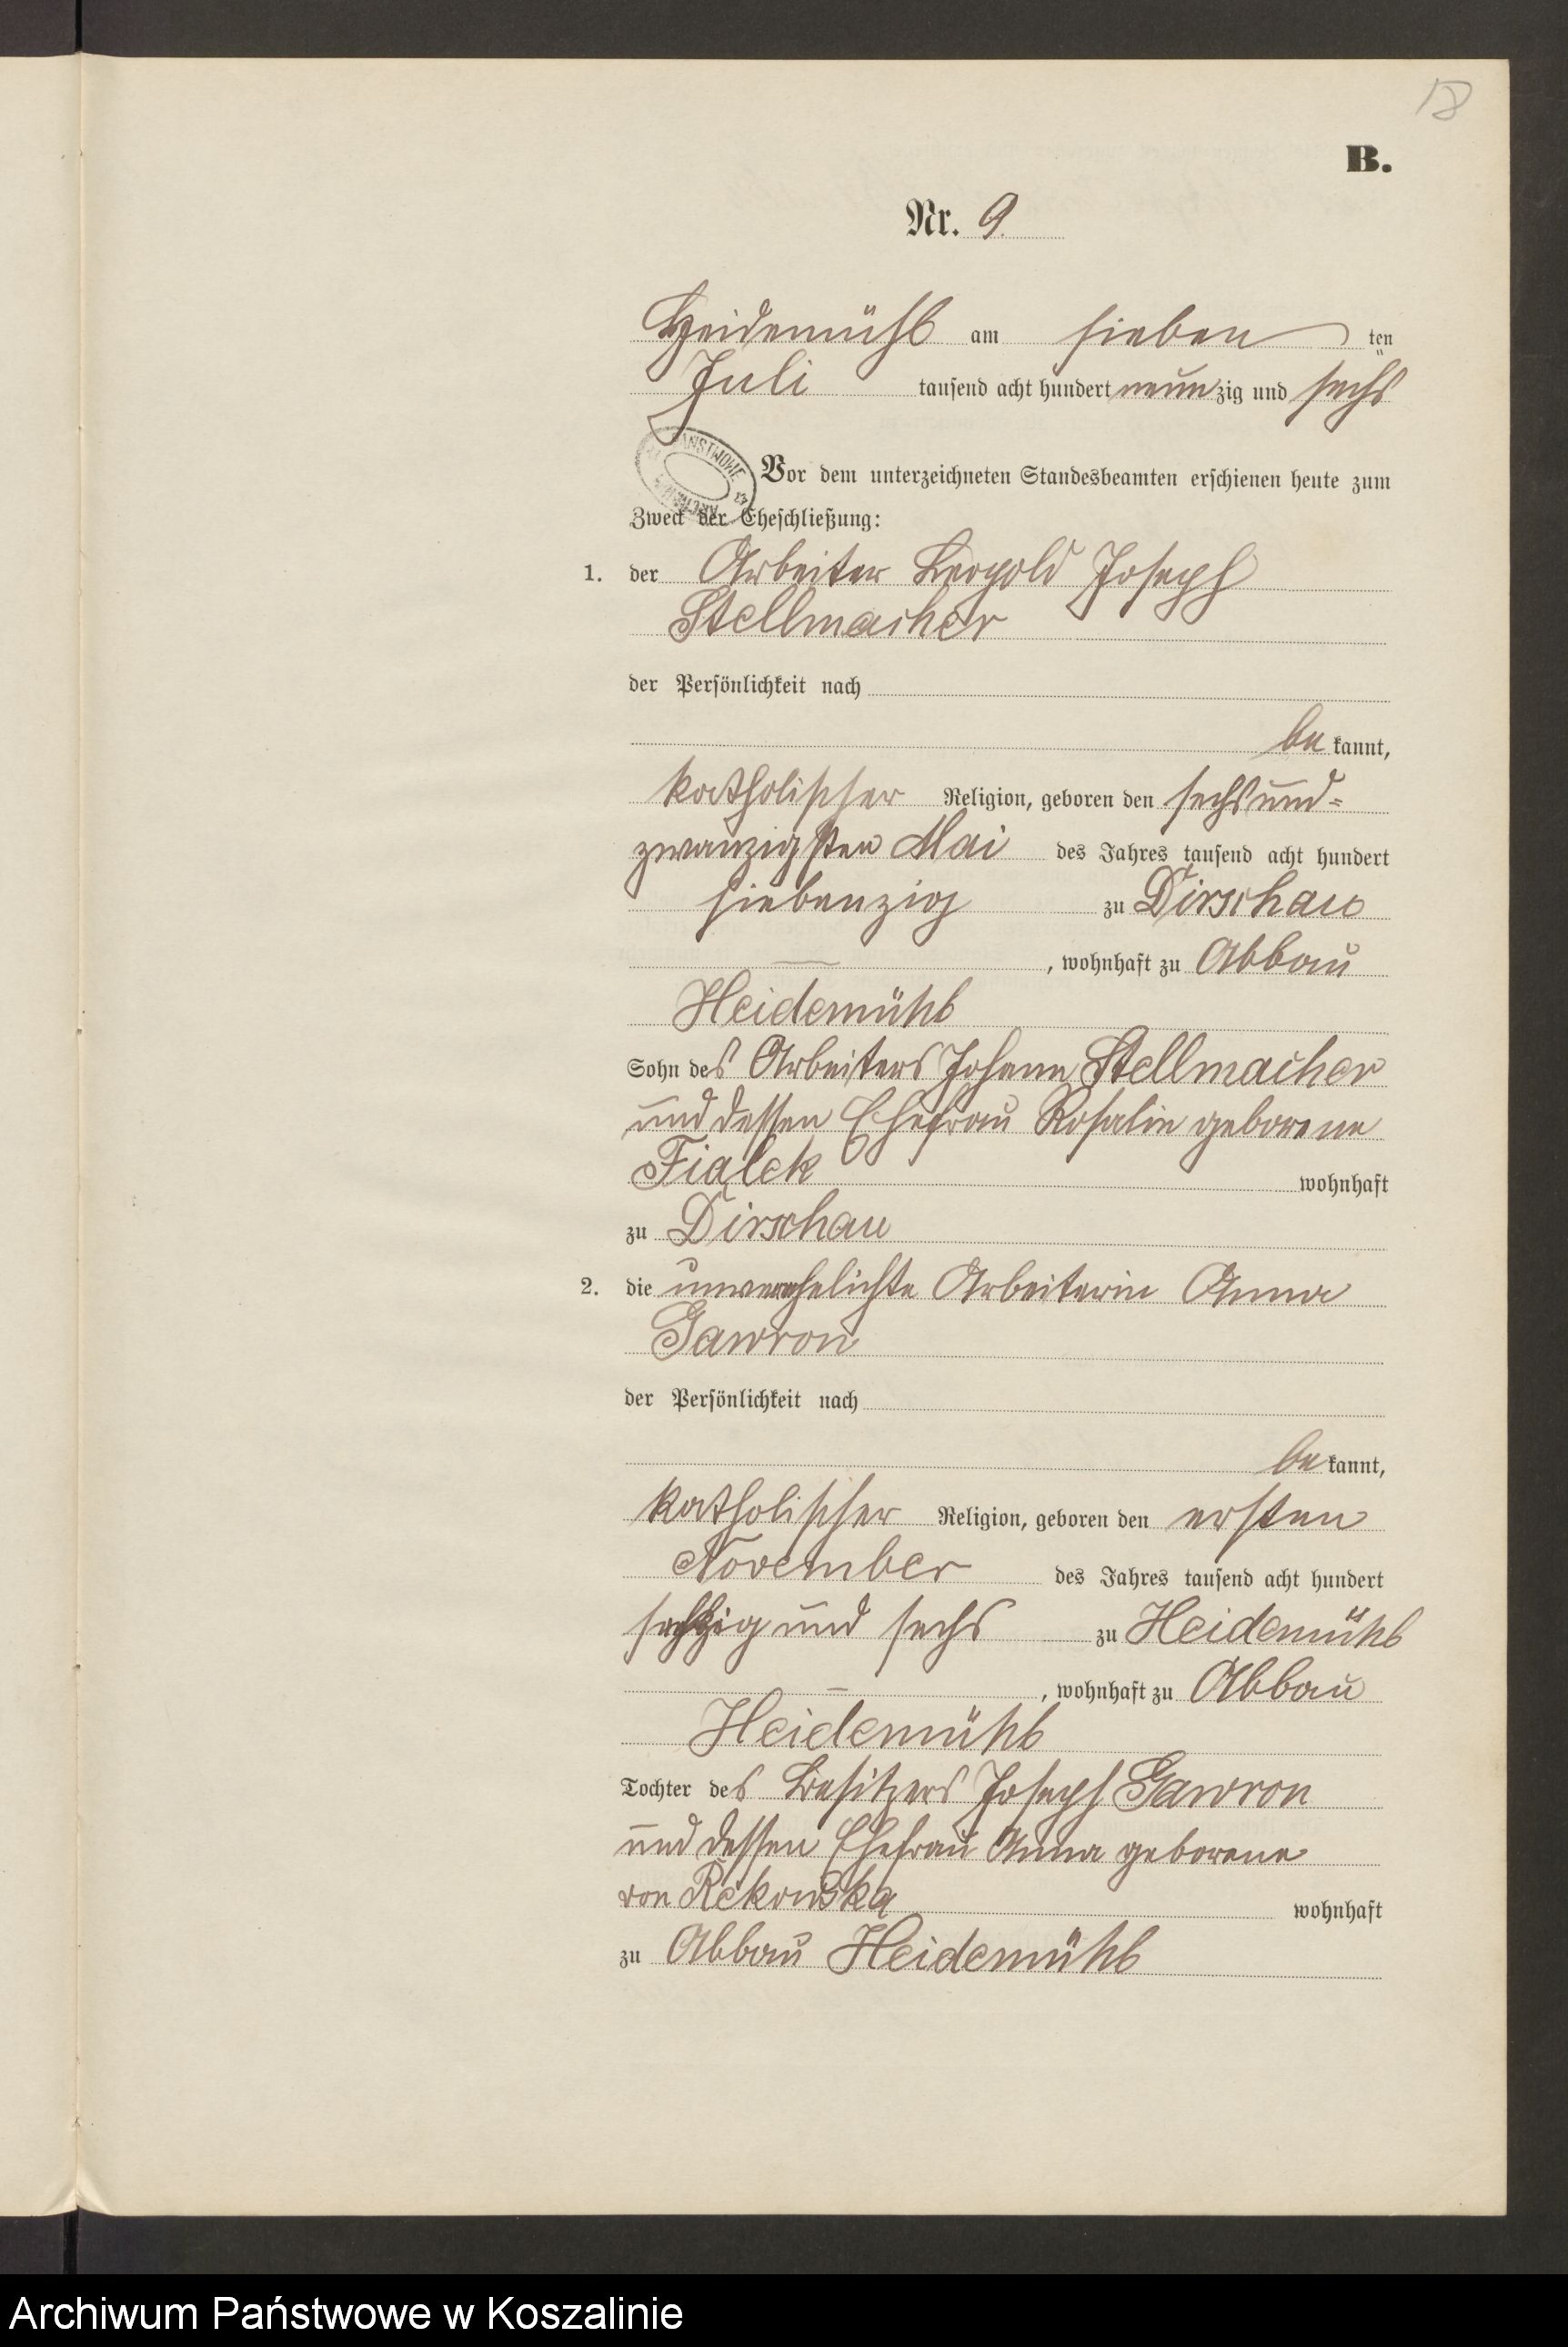 18
B.
Nr. 9.
Heidemühl am sieben ten
Juli tausend acht hundert neun zig und sechs
Vor dem unterzeichneten Standesbeamten erschienen heute zum
Zweck der Eheschließung:
1. der Arbeiter Leopold Joseph
Stellmacher
der Persönlichkeit nach
be kannt,
katholischer Religion, geboren den sechsund-
zwanzigsten Mai des Jahres tausend acht hundert
siebenzig zu Dirschau
, wohnhaft zu Abbau
Heidemühl
Sohn des Arbeiters Johann Stellmacher
und dessen Ehefrau Rosalie geborene
Fialek wohnhaft
zu Dirschau
2. die unverehelichte Arbeiterin Anna
Gawron
der Persönlichkeit nach
be kannt,
katholischer Religion, geboren den ersten
November des Jahres tausend acht hundert
sechzig und sechs zu Heidemühl
, wohnhaft zu Abbau
Heidemühl
Tochter des Besitzers Joseph Gawron
und dessen Ehefrau Anna geborene
von Rekowska wohnhaft
zu Abbau Heidemühl
Archiwum Państwowe w Koszalinie